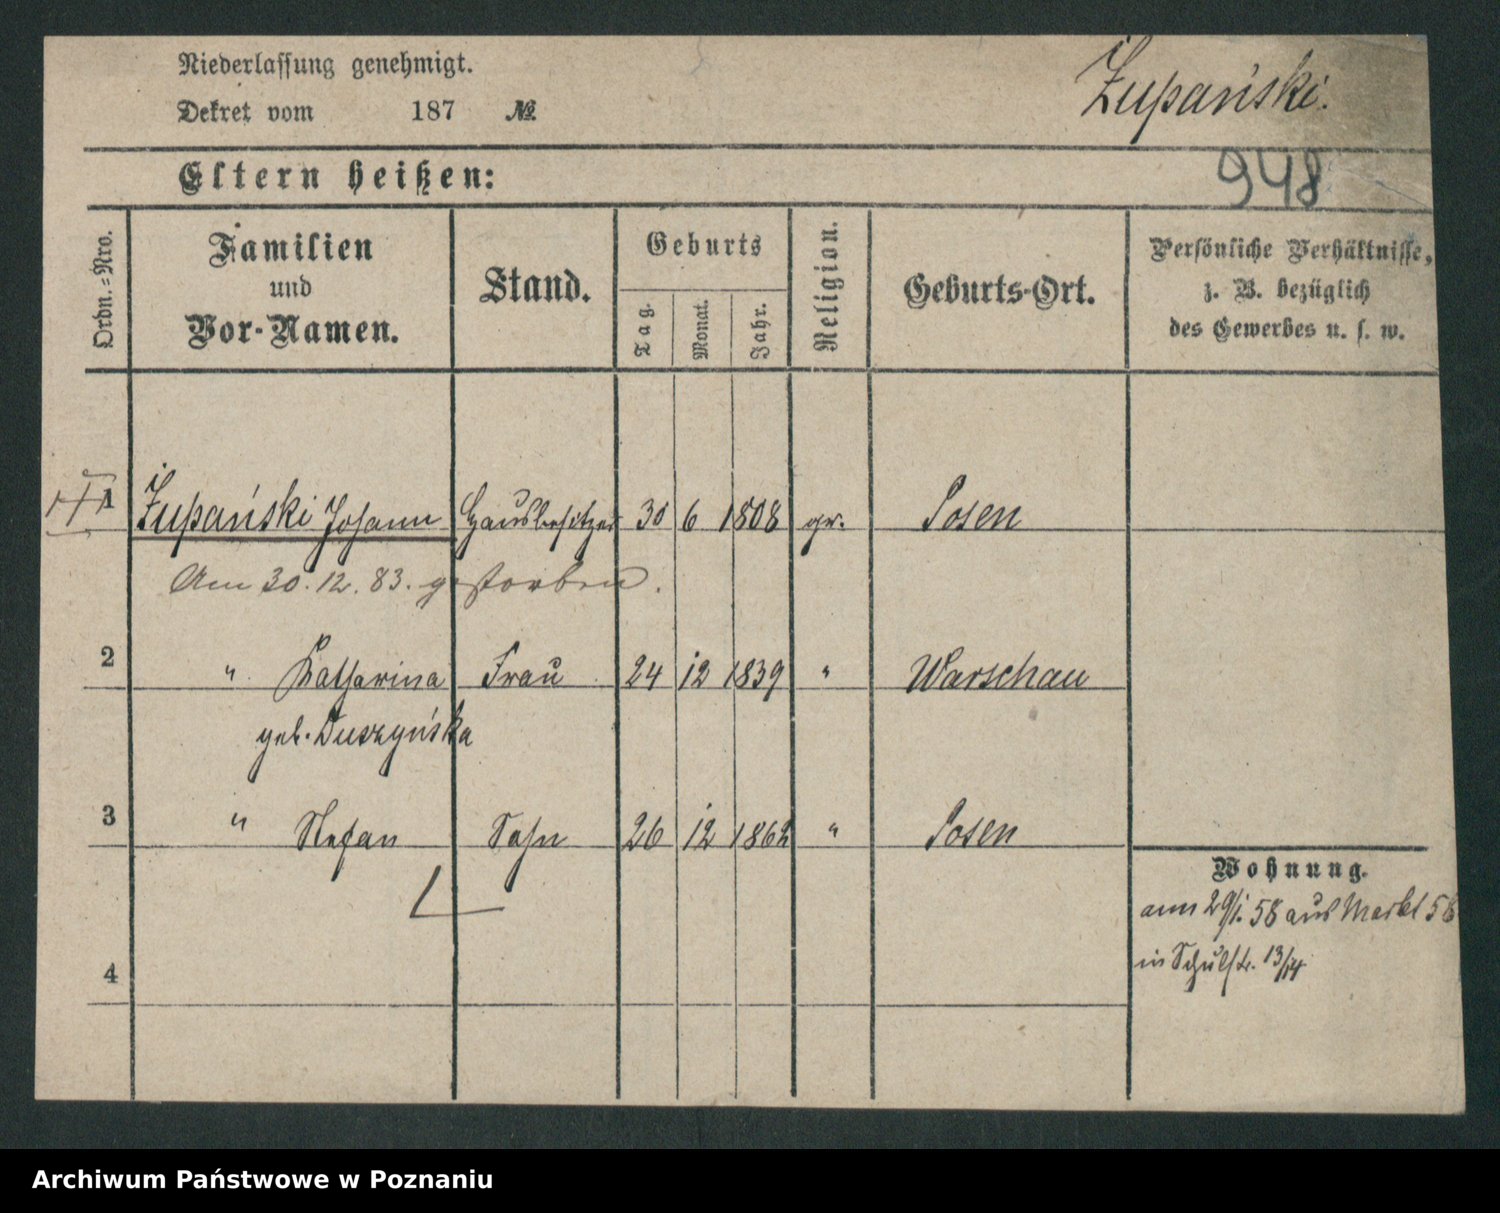 Niederlassung genehmigt.
Żupański.
Dekret vom 187 №
Eltern heißen:
948
Ordn.-Nro.
Familien und Vor-Namen.
Stand.
Geburts
Tag.
Monat.
Jahr.
Religion.
Geburts-Ort.
Persönliche Verhältnisse,
z. B. bezüglich
des Gewerbes u. s. w.
1 Żupański Johann Hausbesitzer 30 6 1808 gr. Posen
Am 30. 12. 83. gestorben.
2 " Katharina Frau 24 12 1839 " Warschau
geb. Duszyńska
3 " Stefan Sohn 26 12 1862 " Posen
4
Wohnung.
am 29/1. 58 aus Markt 58
in Schulstr. 13/14
Archiwum Państwowe w Poznaniu